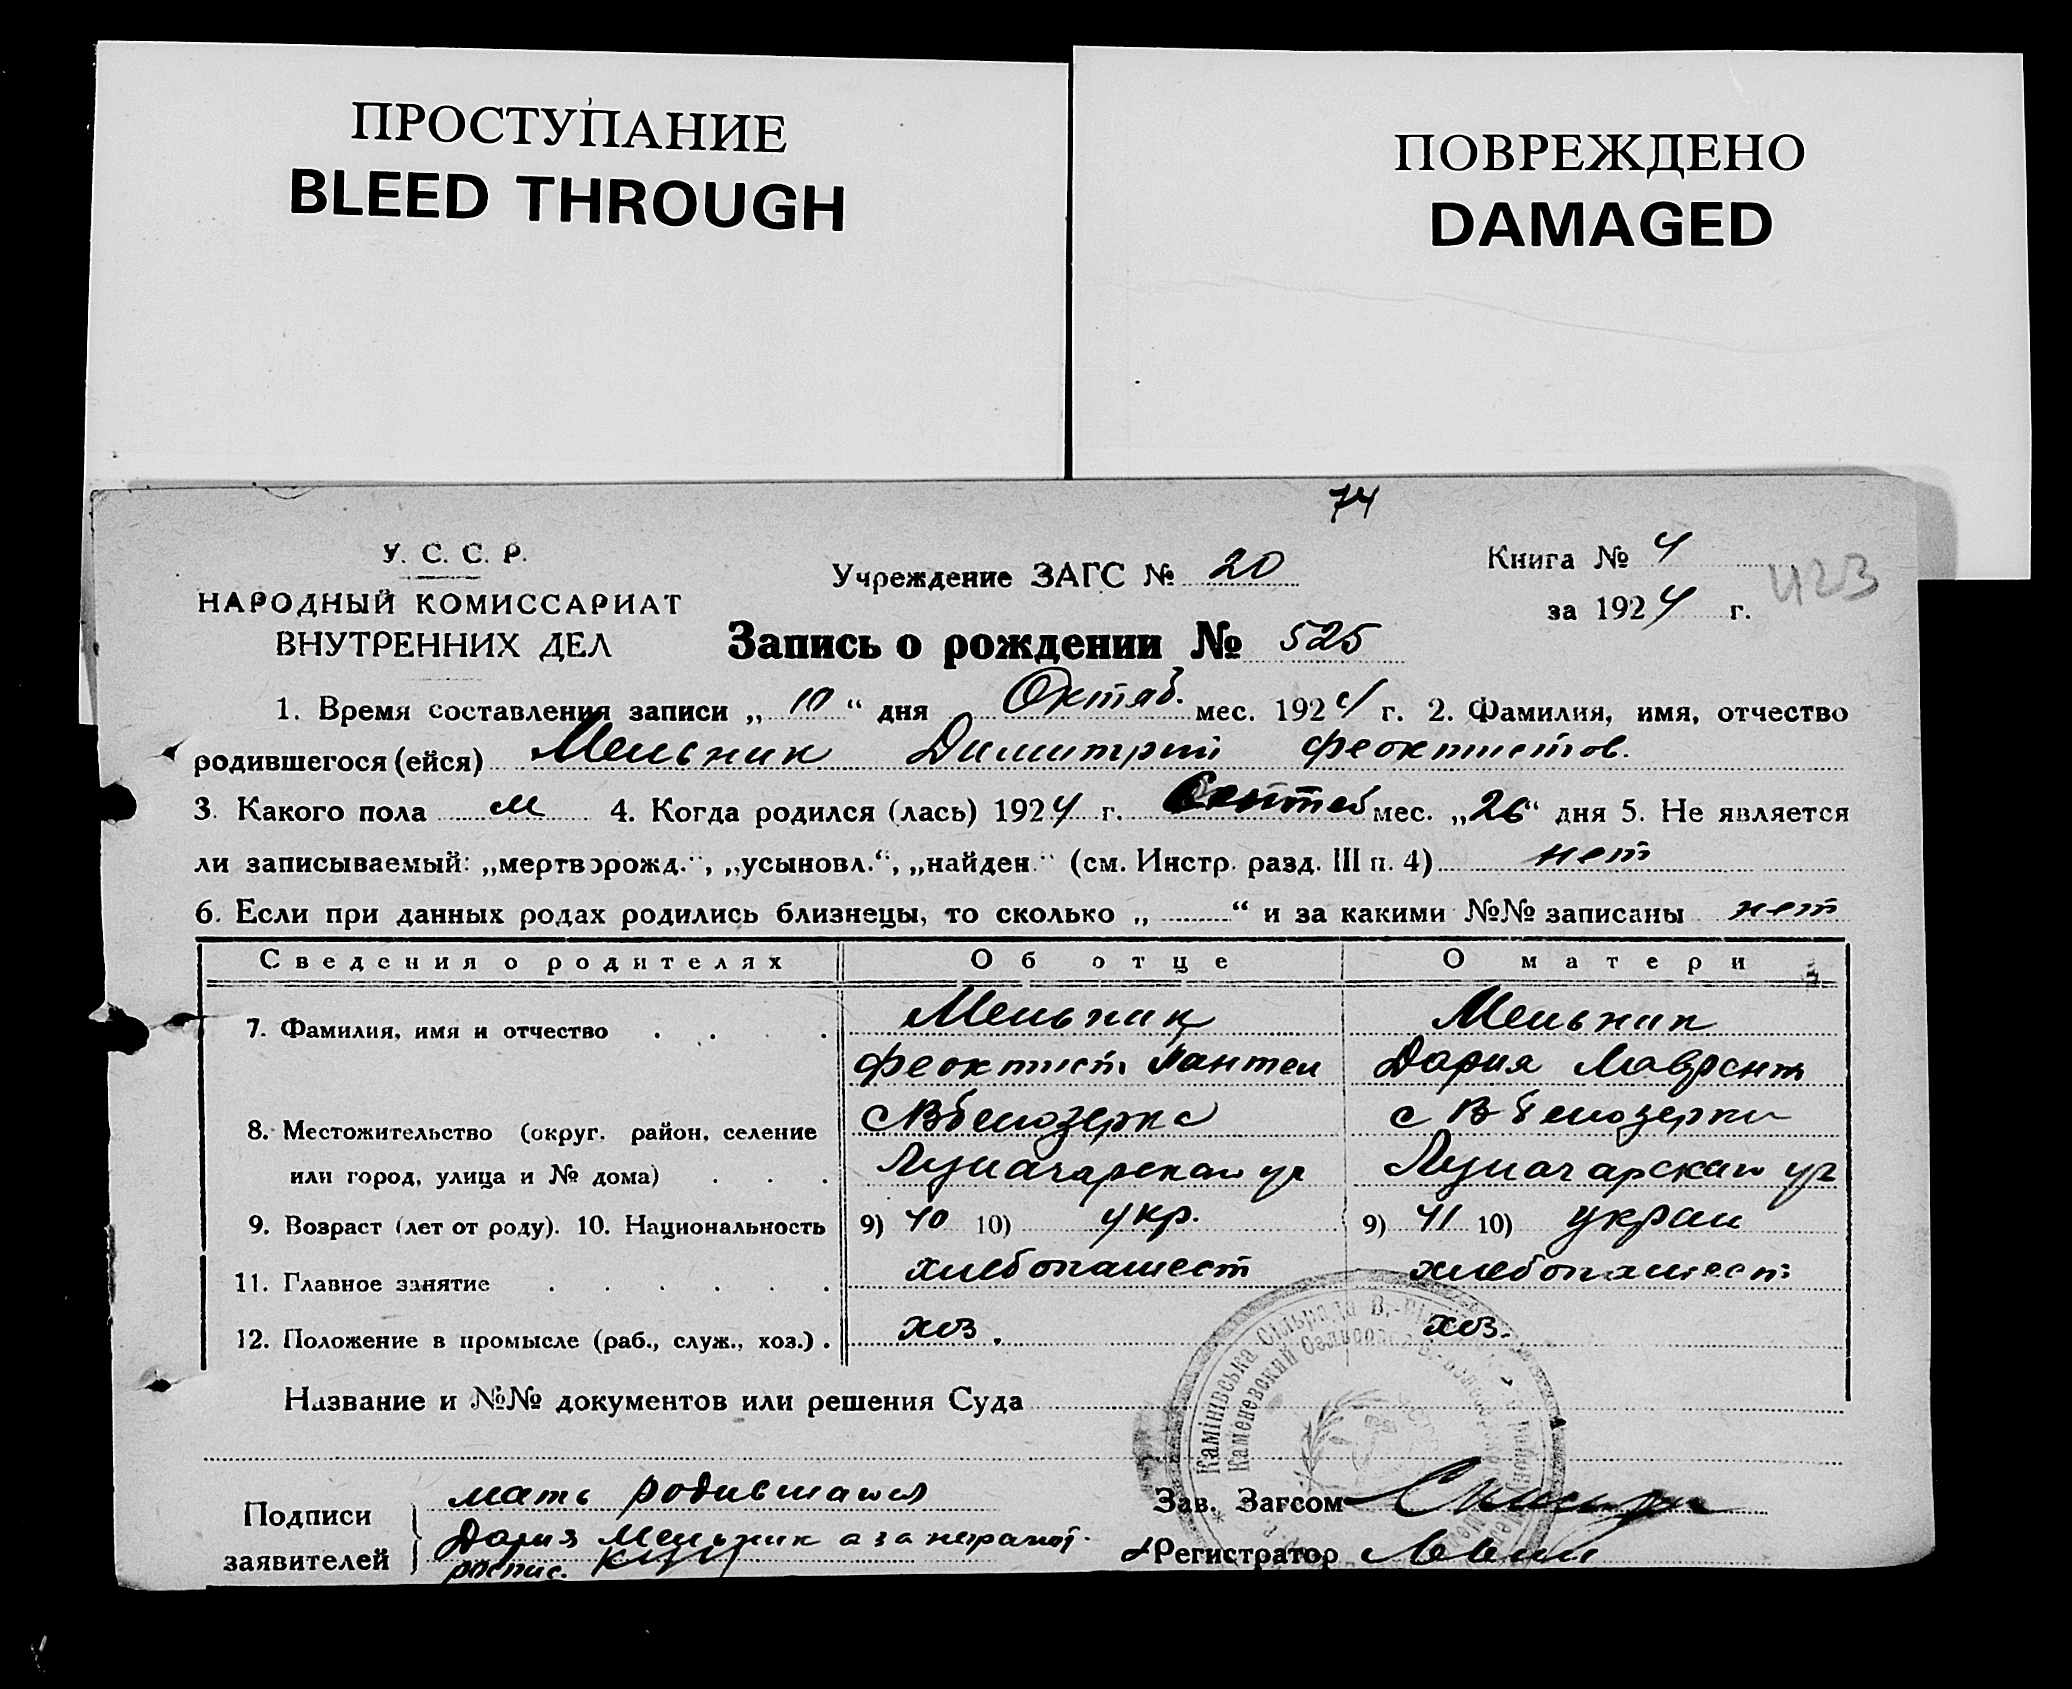 ПРОСТУПАНИЕ
BLEED THROUGH
ПОВРЕЖДЕНО
DAMAGED
74
У. С. С. Р.
НАРОДНЫЙ КОМИССАРИАТ
ВНУТРЕННИХ ДЕЛ
Учреждение ЗАГС № 20
Книга № 4
423
за 1924 г.
Запись о рождении № 525
1. Время составления записи „10“ дня Октяб. мес. 1924 г. 2. Фамилия, имя, отчество
родившегося (ейся) Мельник Димитрий Феоктистов.
3. Какого пола м 4. Когда родился (лась) 1924 г. Сентяб мес. „26“ дня 5. Не является
ли записываемый: „мертворожд.“, „усыновл.“, „найден.“ (см. Инстр. разд. III п. 4) нет
6. Если при данных родах родились близнецы, то сколько „ “ и за какими №№ записаны нет
Сведения о родителях Об отце О матери
7. Фамилия, имя и отчество Мельник Мельник
Феоктист Пантел Дария Лаврент
8. Местожительство (округ, район, селение с В белозерка с В белозерки
или город, улица и № дома) Луначарская ул Луначарская ул
9. Возраст (лет от роду). 10. Национальность 9) 40 10) укр. 9) 41 10) украи
11. Главное занятие хлебопашест хлебопашест
12. Положение в промысле (раб., служ., хоз.) хоз. хоз.
Название и №№ документов или решения Суда
Камінівська Сільрада В.-
Каменевский Сельсовет В.-
Подписи
заявителей
мать родившаяся
Дария Мельник а за неграмот.
роспис.
Зав. Загсом
Регистратор